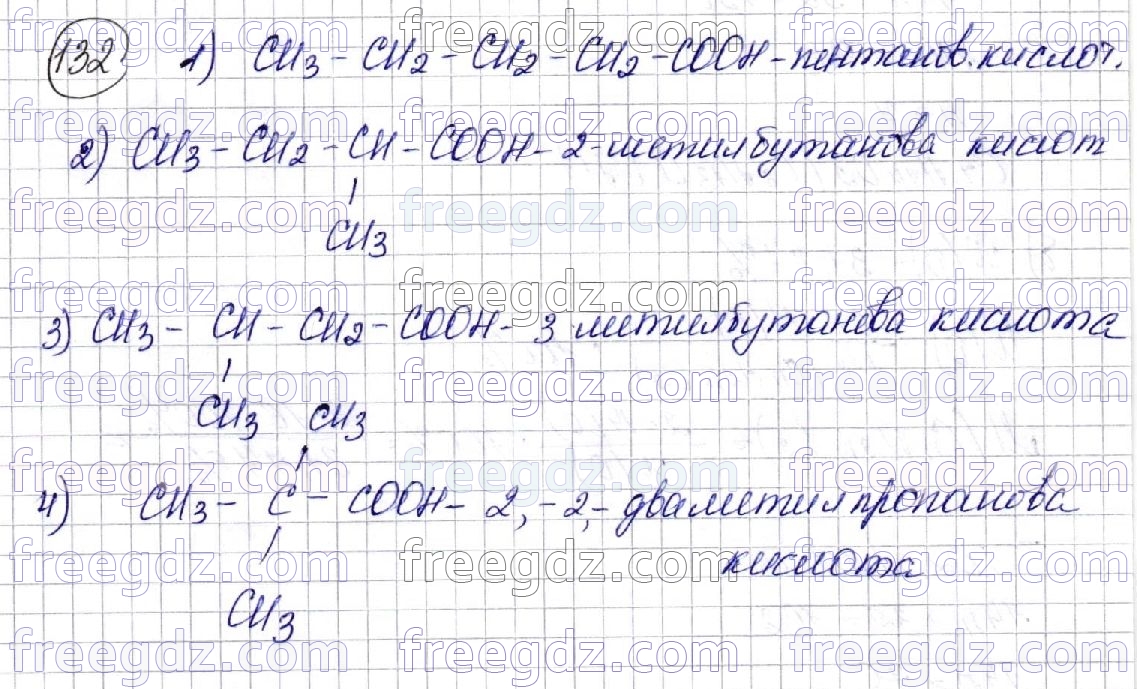 132 1) CH3 - CH2 - CH2 - CH2 - COOH - пентанов. кислот.
2) CH3 - CH2 - CH - COOH - 2-метилбутанова кислот
CH3
3) CH3 - CH - CH2 - COOH - 3 метилбутанова кислота
CH3 CH3
4) CH3 - C - COOH - 2, -2,- дваметилпропанова
кислота
CH3
freegdz.com